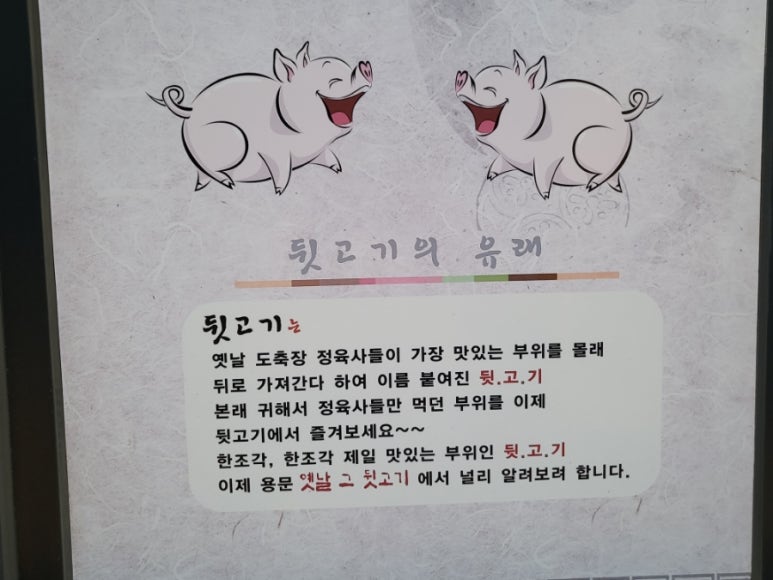 뒷고기의 유래
뒷고기는
옛날 도축장 정육사들이 가장 맛있는 부위를 몰래
뒤로 가져간다 하여 이름 붙여진 뒷.고.기
본래 귀해서 정육사들만 먹던 부위를 이제
뒷고기에서 즐겨보세요~~
한조각, 한조각 제일 맛있는 부위인 뒷.고.기
이제 용문 옛날 그 뒷고기 에서 널리 알려보려 합니다.